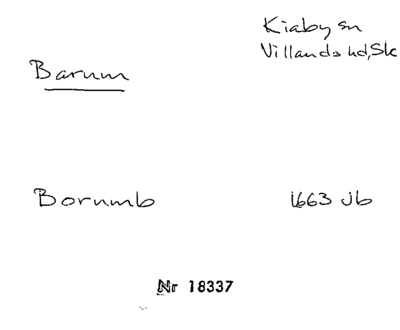 Kiaby sn
Villands hd, Sk
Barum
Borumb 1663 Jb
Nr 18337